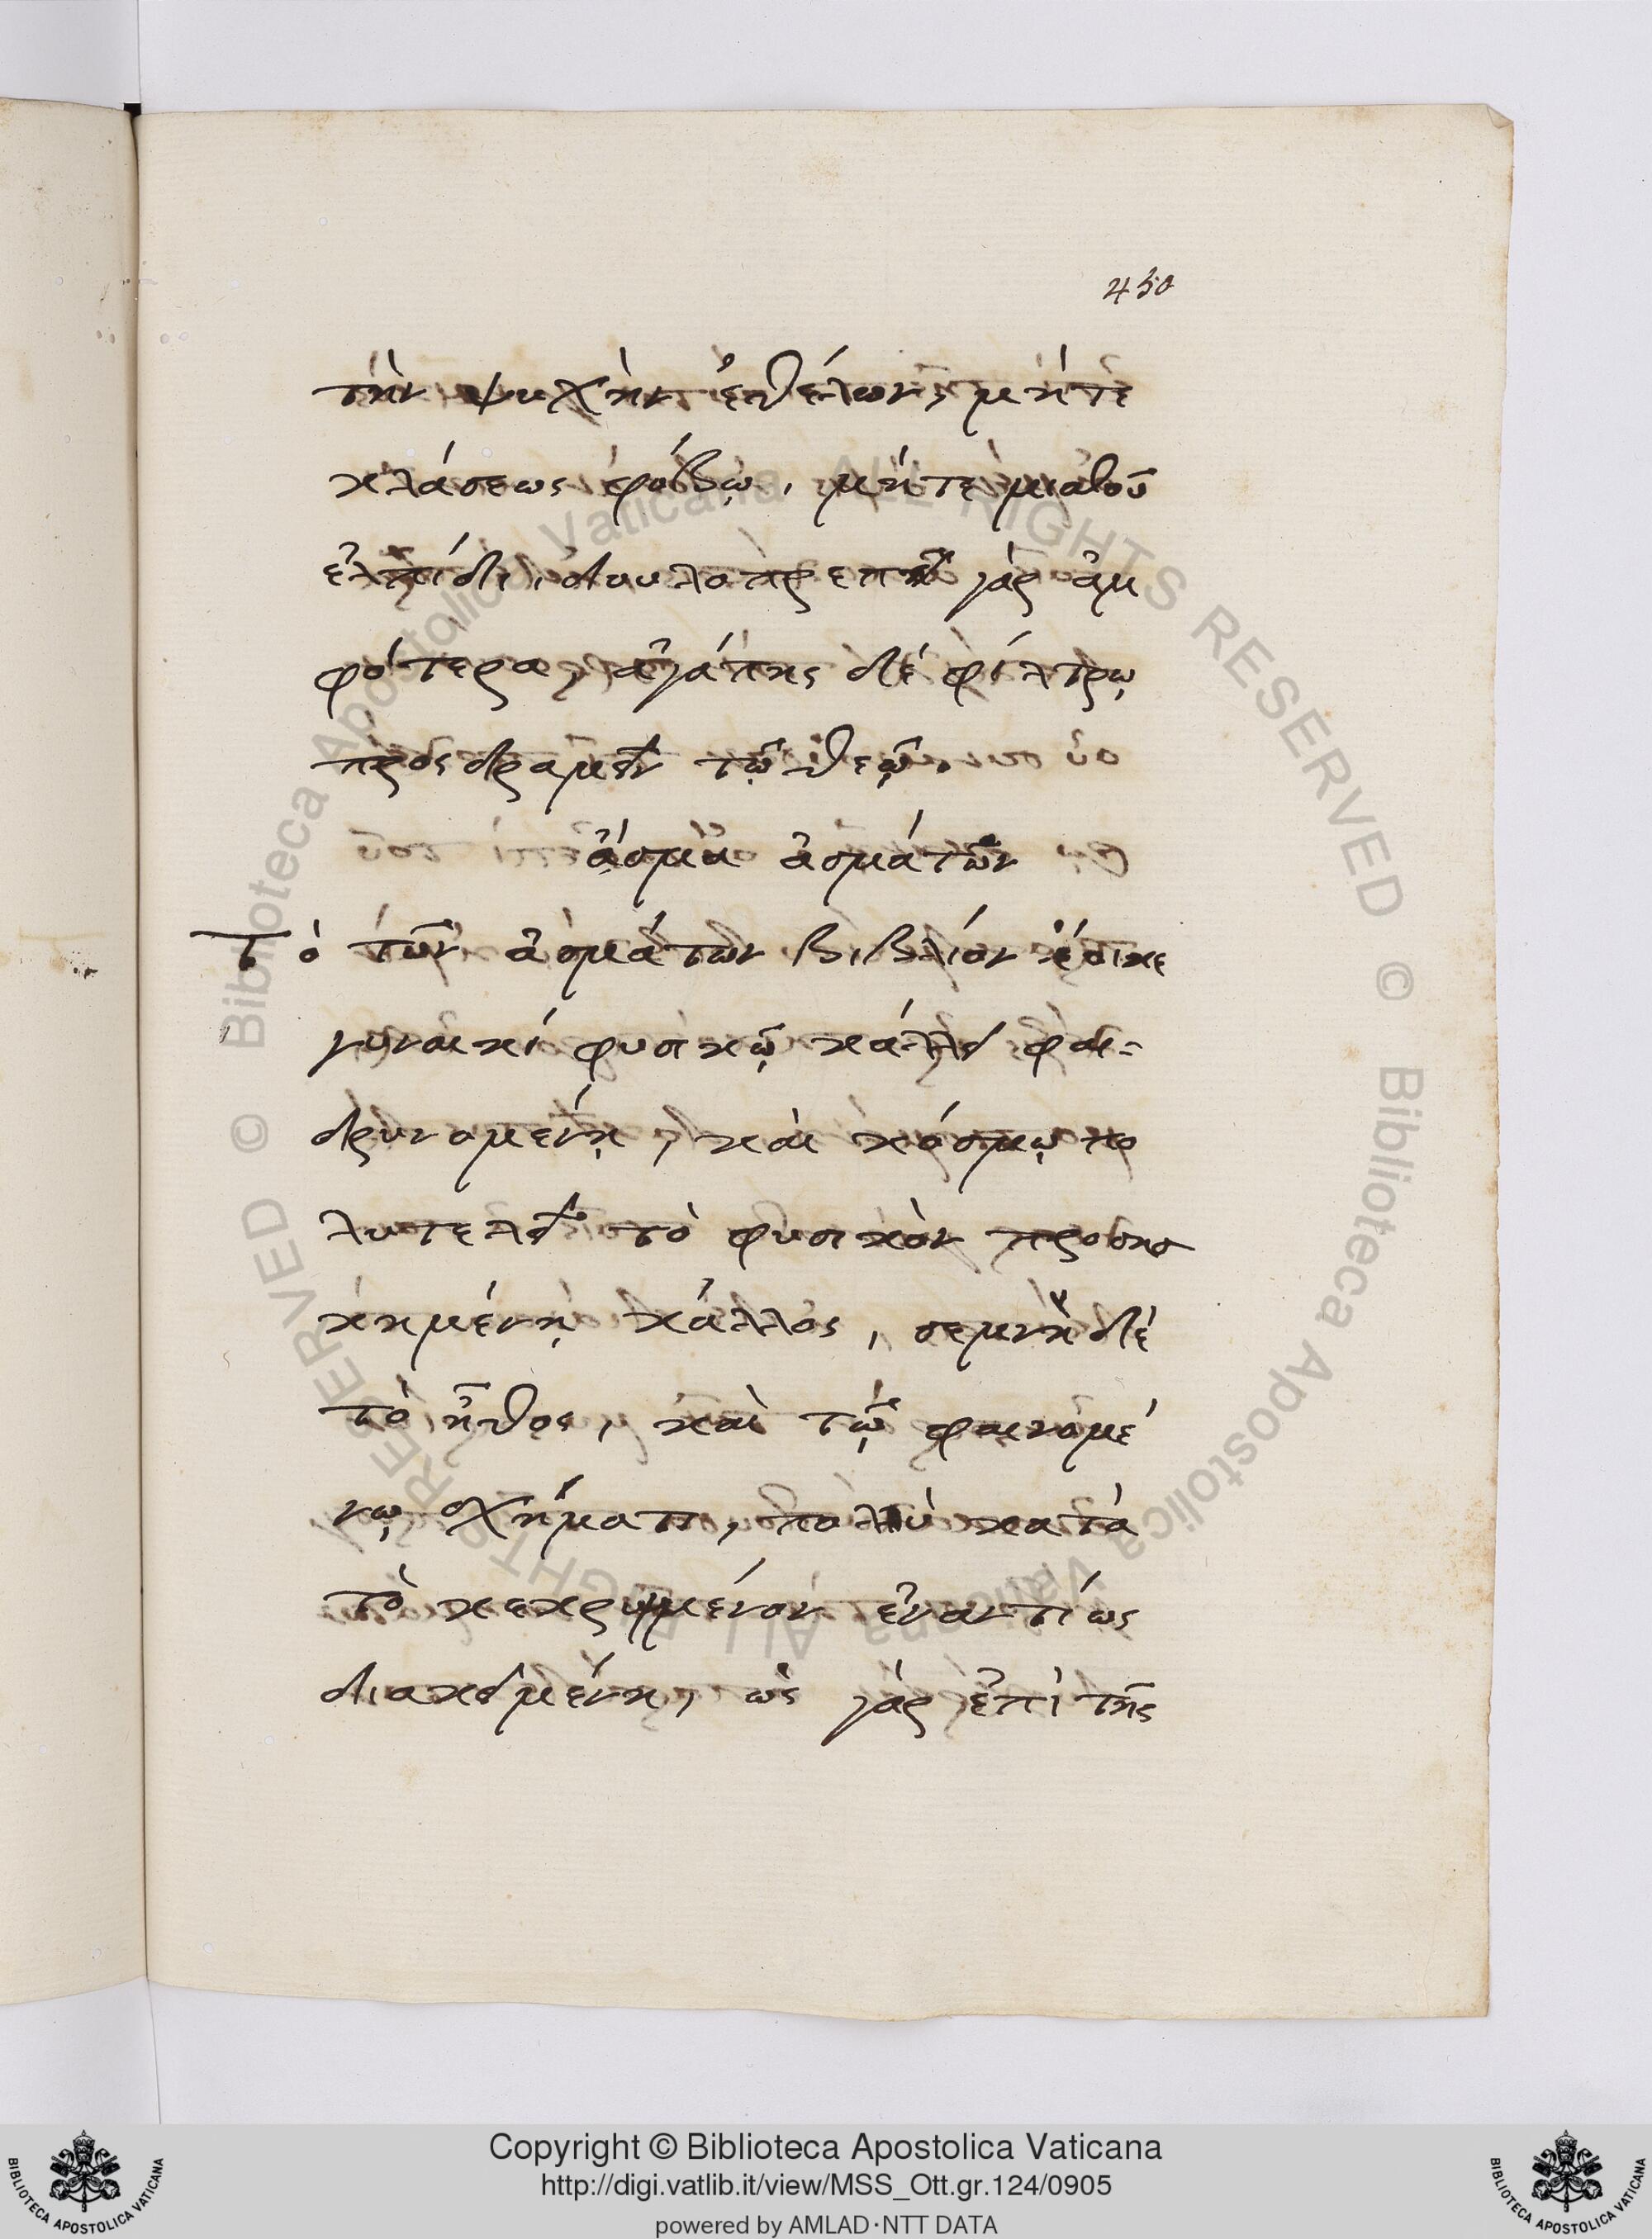 450
τὴν ψυχὴν ἐθέλων, μήτε
κλάσεως φόβῳ, μήτε μισθοῦ
ἐλπίδι, δουλοπρεπῆ γὰρ ἀμ
φότερα, ἀγάπης δὲ φίλτρῳ
προσδραμεῖν τῷ θεῷ.
ᾆσμα ἀσμάτων
Τὸ τῶν ἀσμάτων βιβλίον ἔοικε
γυναικὶ φυσικῷ κάλλει φαι-
δρυνομένῃ, καὶ κόσμῳ πο
λυτελεῖ τὸ φυσικὸν προσησ
κημένῃ κάλλος, σεμνῇ δὲ
τὸ ἦθος, καὶ τῷ φαινομέ
νῳ σχήματι, πολὺ κατὰ
τὸ κεκρυμμένον ἐναντίως
διακειμένη, ὡς γὰρ ἐπὶ τῆς
Copyright © Biblioteca Apostolica Vaticana
http://digi.vatlib.it/view/MSS_Ott.gr.124/0905
powered by AMLAD·NTT DATA
BIBLIOTECA APOSTOLICA VATICANA
BIBLIOTECA APOSTOLICA VATICANA
© Biblioteca Apostolica Vaticana ALL RIGHTS RESERVED
© Biblioteca Apostolica Vaticana ALL RIGHTS RESERVED